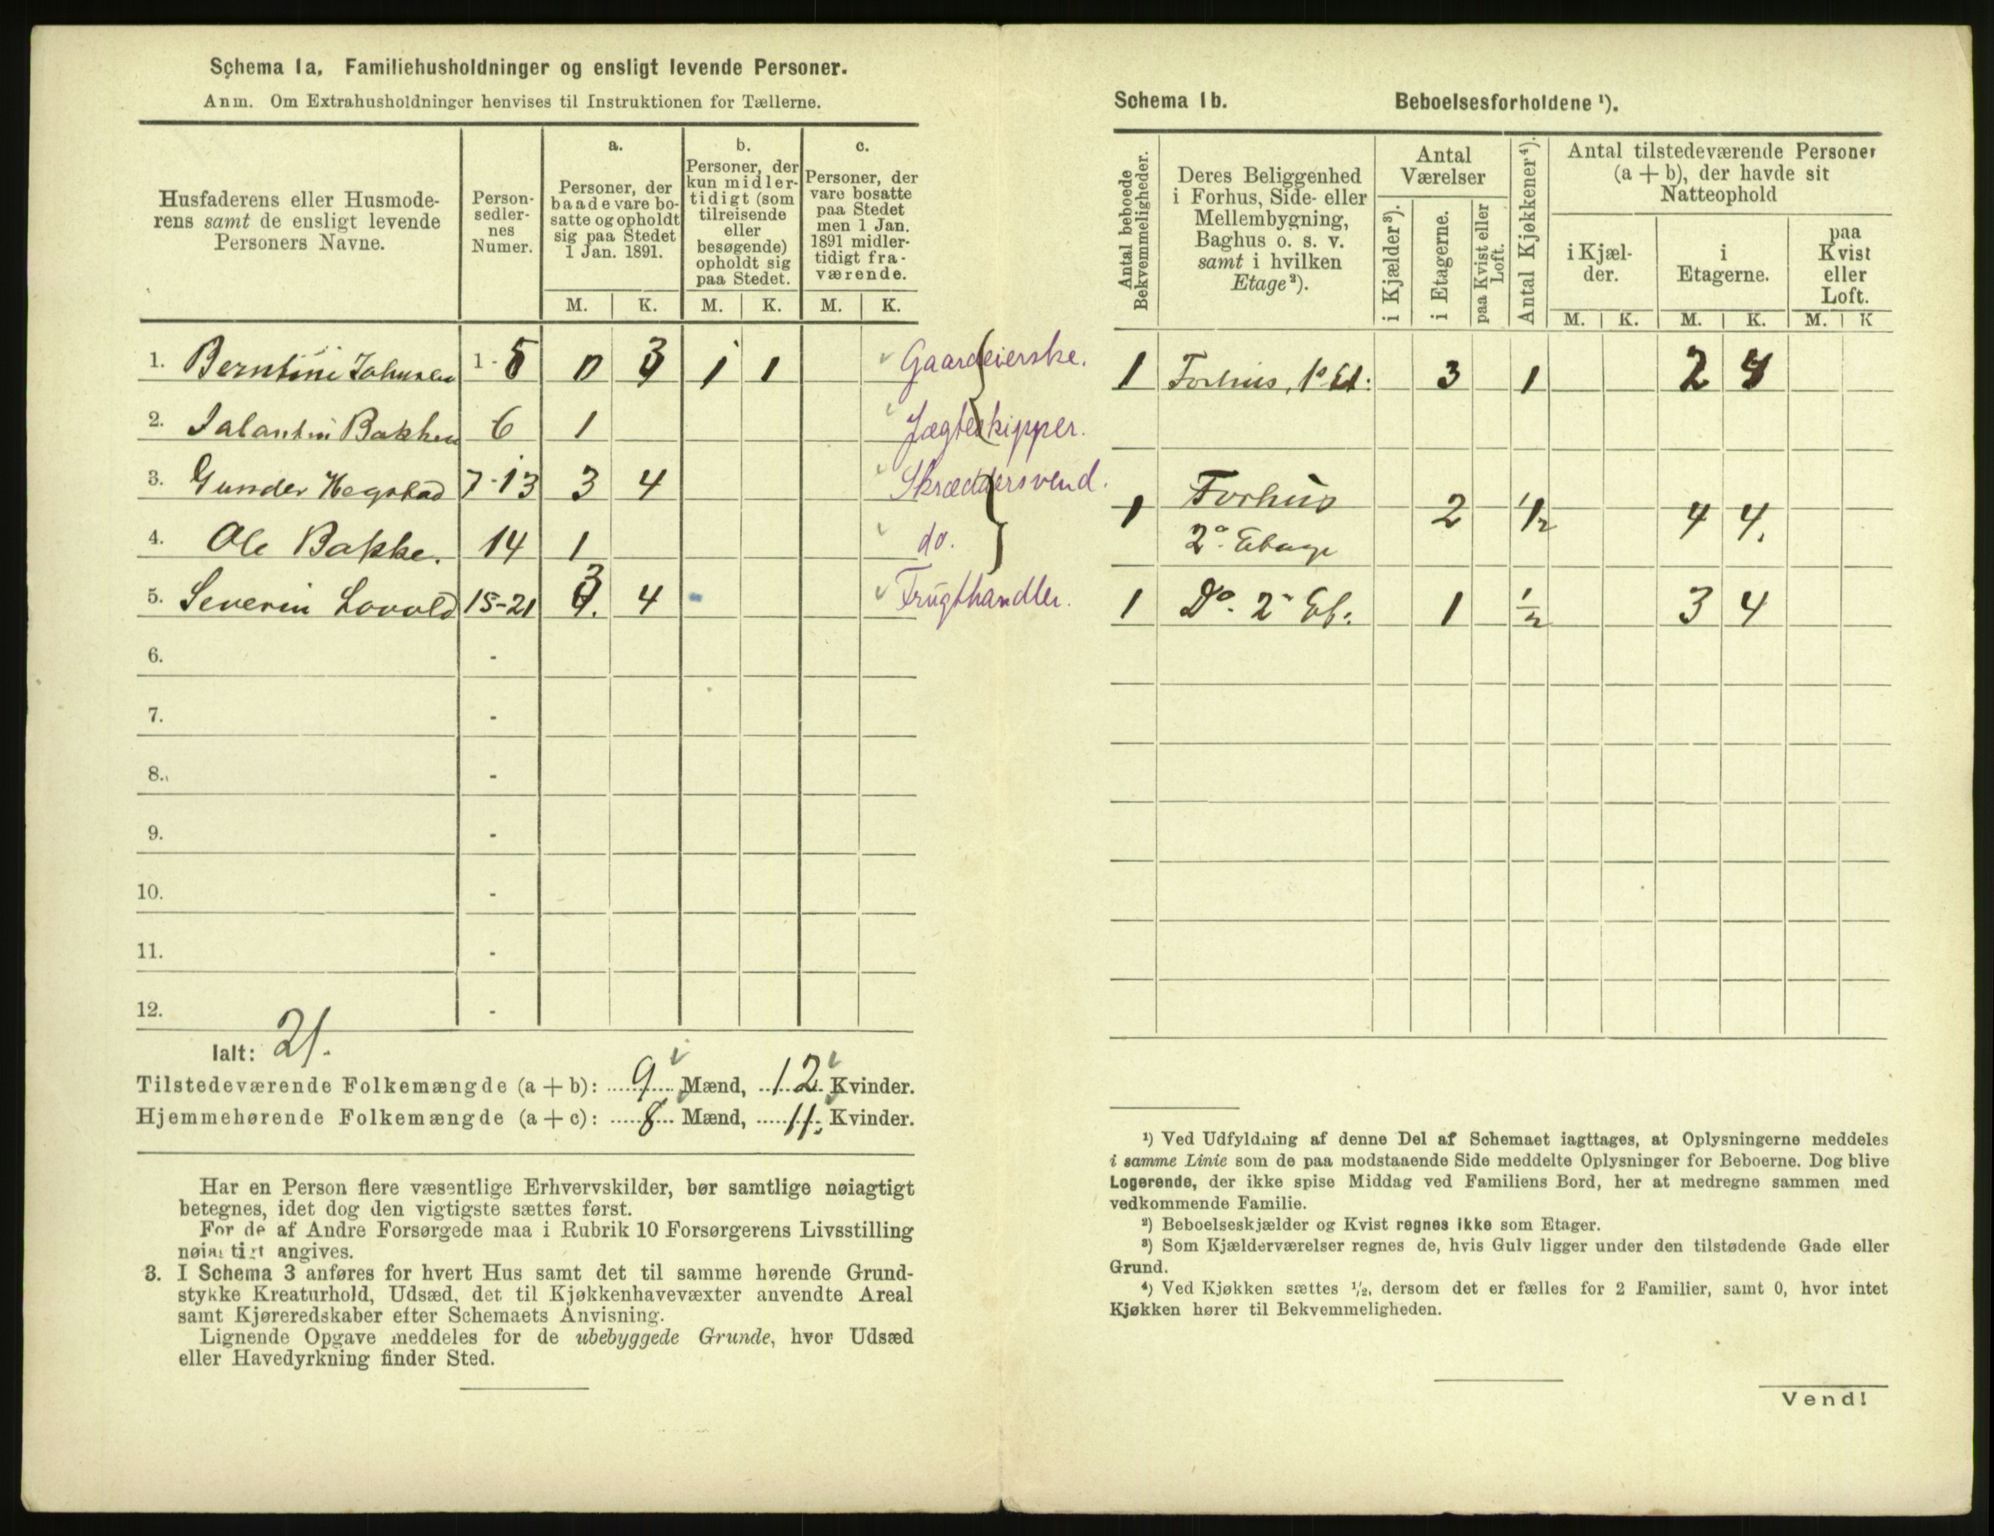 Schema 1a. Familiehusholdninger og ensligt levende Personer.
Anm. Om Extrahusholdninger henvises til Instruktionen for Tællerne.
Husfaderens eller Husmode-
rens samt de ensligt levende
Personers Navne.
Person-
sedler-
nes
Numer.
a.
Personer, der
baade vare bo-
satte og opholdt
sig paa Stedet
1 Jan. 1891.
b.
Personer, der
kun midler-
tidigt (som
tilreisende
eller
besøgende)
opholdt sig
paa Stedet.
c.
Personer, der
vare bosatte
paa Stedet
men 1 Jan.
1891 midler-
tidigt fra-
værende.
M. K. M. K. M. K.
1. Berntine Johnsen 1-5 0 3 1 1 Gaardeierske.
2. Bakken 6 1 Jægteskipper.
3. Gunder Hegstad 7-13 3 4 Skræddersvend.
4. Ole Bakke. 14 1 do.
5. Severin Lovold 15-21 3 4 Frugthandler.
6. -
7. -
8. -
9. -
10. -
11. -
12. -
Ialt: 21.
Tilstedeværende Folkemængde (a + b): 9 Mænd, 12 Kvinder.
Hjemmehørende Folkemængde (a + c): 8 Mænd, 11. Kvinder.
Har en Person flere væsentlige Erhvervskilder, bør samtlige nøiagtigt
betegnes, idet dog den vigtigste sættes først.
For de af Andre Forsørgede maa i Rubrik 10 Forsørgerens Livsstilling
nøiagtigt angives.
3. I Schema 3 anføres for hvert Hus samt det til samme hørende Grund-
stykke Kreaturhold, Udsæd, det til Kjøkkenhavevæxter anvendte Areal
samt Kjøreredskaber efter Schemaets Anvisning.
Lignende Opgave meddeles for de ubebyggede Grunde, hvor Udsæd
eller Havedyrkning finder Sted.
Schema 1b. Beboelsesforholdene ¹).
Antal beboede
Bekvemmeligheder.
Deres Beliggenhed
i Forhus, Side- eller
Mellembygning,
Baghus o. s. v.
samt i hvilken
Etage ²).
Antal
Værelser
i Kjælder ³).
i Etagerne.
paa Kvist eller
Loft.
Antal Kjøkkener ⁴).
Antal tilstedeværende Personer
(a + b), der havde sit
Natteophold
i Kjæl-
der.
i
Etagerne.
paa
Kvist
eller
Loft.
M. K. M. K. M. K
1 Forhus, 1° Et: 3 1 2 4
1 Forhus 2 1/2 4 4.
2° Etage
1 D° 2 Et: 1 1/2 3 4
¹) Ved Udfyldning af denne Del af Schemaet iagttages, at Oplysningerne meddeles
i samme Linie som de paa modstaaende Side meddelte Oplysninger for Beboerne. Dog blive
Logerende, der ikke spise Middag ved Familiens Bord, her at medregne sammen med
vedkommende Familie.
²) Beboelseskjælder og Kvist regnes ikke som Etager.
³) Som Kjælderværelser regnes de, hvis Gulv ligger under den tilstødende Gade eller
Grund.
⁴) Ved Kjøkken sættes ¹/₂, dersom det er fælles for 2 Familier, samt 0, hvor intet
Kjøkken hører til Bekvemmeligheden.
Vend!